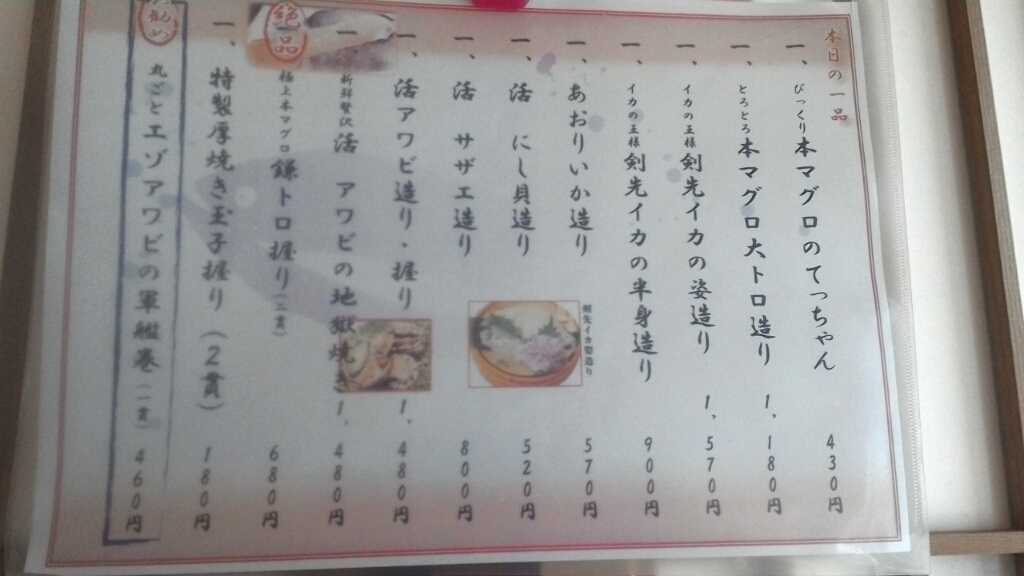 本日の一品
一、びっくり本マグロのてっちゃん 430円
一、とろとろ本マグロ大トロ造り 1,180円
一、イカの王様剣先イカの姿造り 1,570円
一、イカの王様剣先イカの半身造り 900円
一、あおりいか造り 570円
剣先イカ姿造り
一、活 にし貝造り 520円
一、活 サザエ造り 800円
一、活アワビ造り・握り 1,480円
一、新鮮贅沢活 アワビの地獄焼き 1,480円
絶品
極上本マグロ鎌トロ握り(二貫) 680円
一、特製厚焼き玉子握り(2貫) 180円
丸ごとエゾアワビの軍艦巻(一貫) 460円